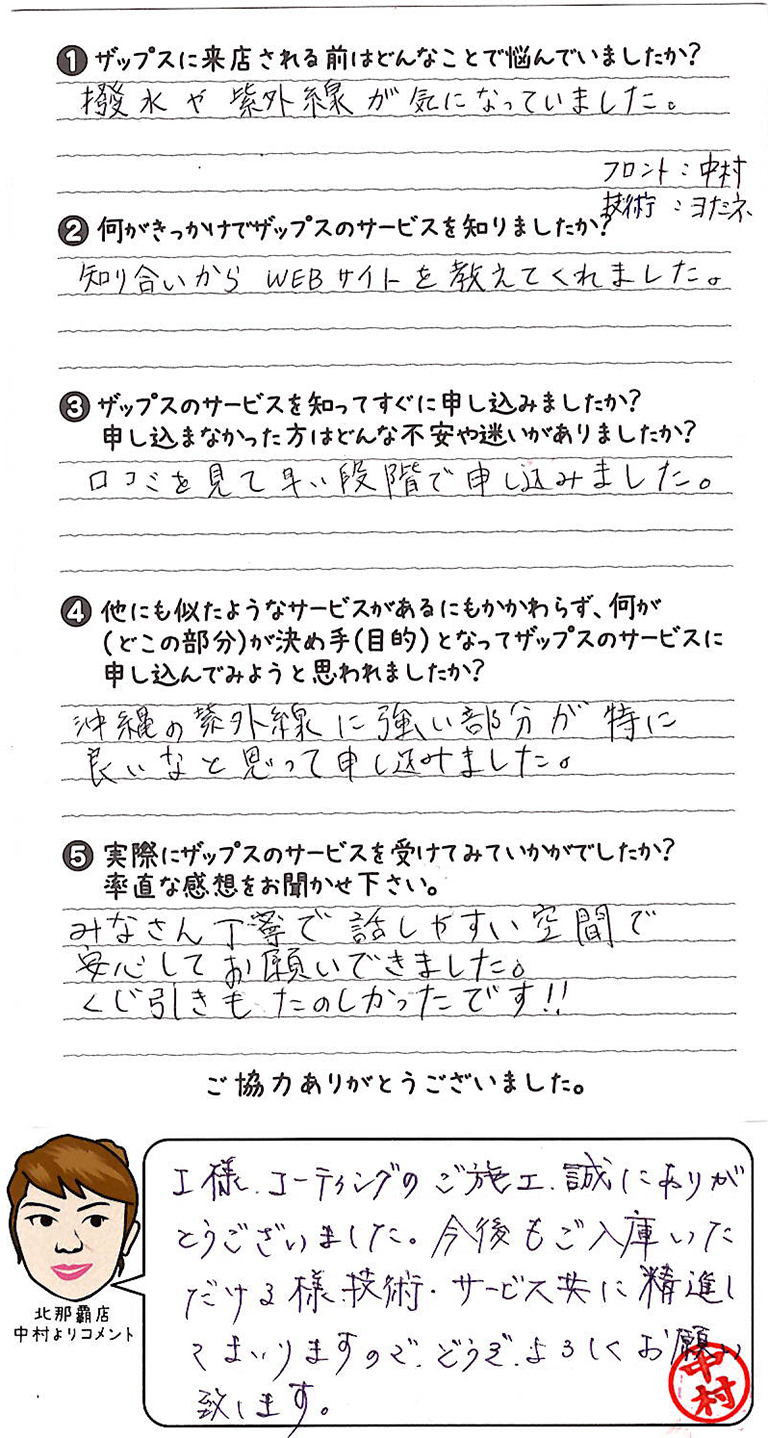 ❶ザップスに来店される前はどんなことで悩んでいましたか?
撥水や紫外線が気になっていました。
フロント:中村
技術:ヨナミネ
❷何がきっかけでザップスのサービスを知りましたか?
知り合いからWEBサイトを教えてくれました。
❸ザップスのサービスを知ってすぐに申し込みましたか?
申し込まなかった方はどんな不安や迷いがありましたか?
口コミを見て早い段階で申し込みました。
❹他にも似たようなサービスがあるにもかかわらず、何が
(どこの部分)が決め手(目的)となってザップスのサービスに
申し込んでみようと思われましたか?
沖縄の紫外線に強い部分が特に
良いなと思って申し込みました。
❺実際にザップスのサービスを受けてみていかがでしたか?
率直な感想をお聞かせ下さい。
みなさん丁寧で話しやすい空間で
安心してお願いできました。
くじ引きもたのしかったです!!
ご協力ありがとうございました。
エ様、コーティングのご施工、誠にありが
とうございました。今後もご入庫いた
だける様、技術・サービス共に精進し
てまいりますので、どうぞ、よろしくお願い
致します。
中村
北那覇店
中村よりコメント